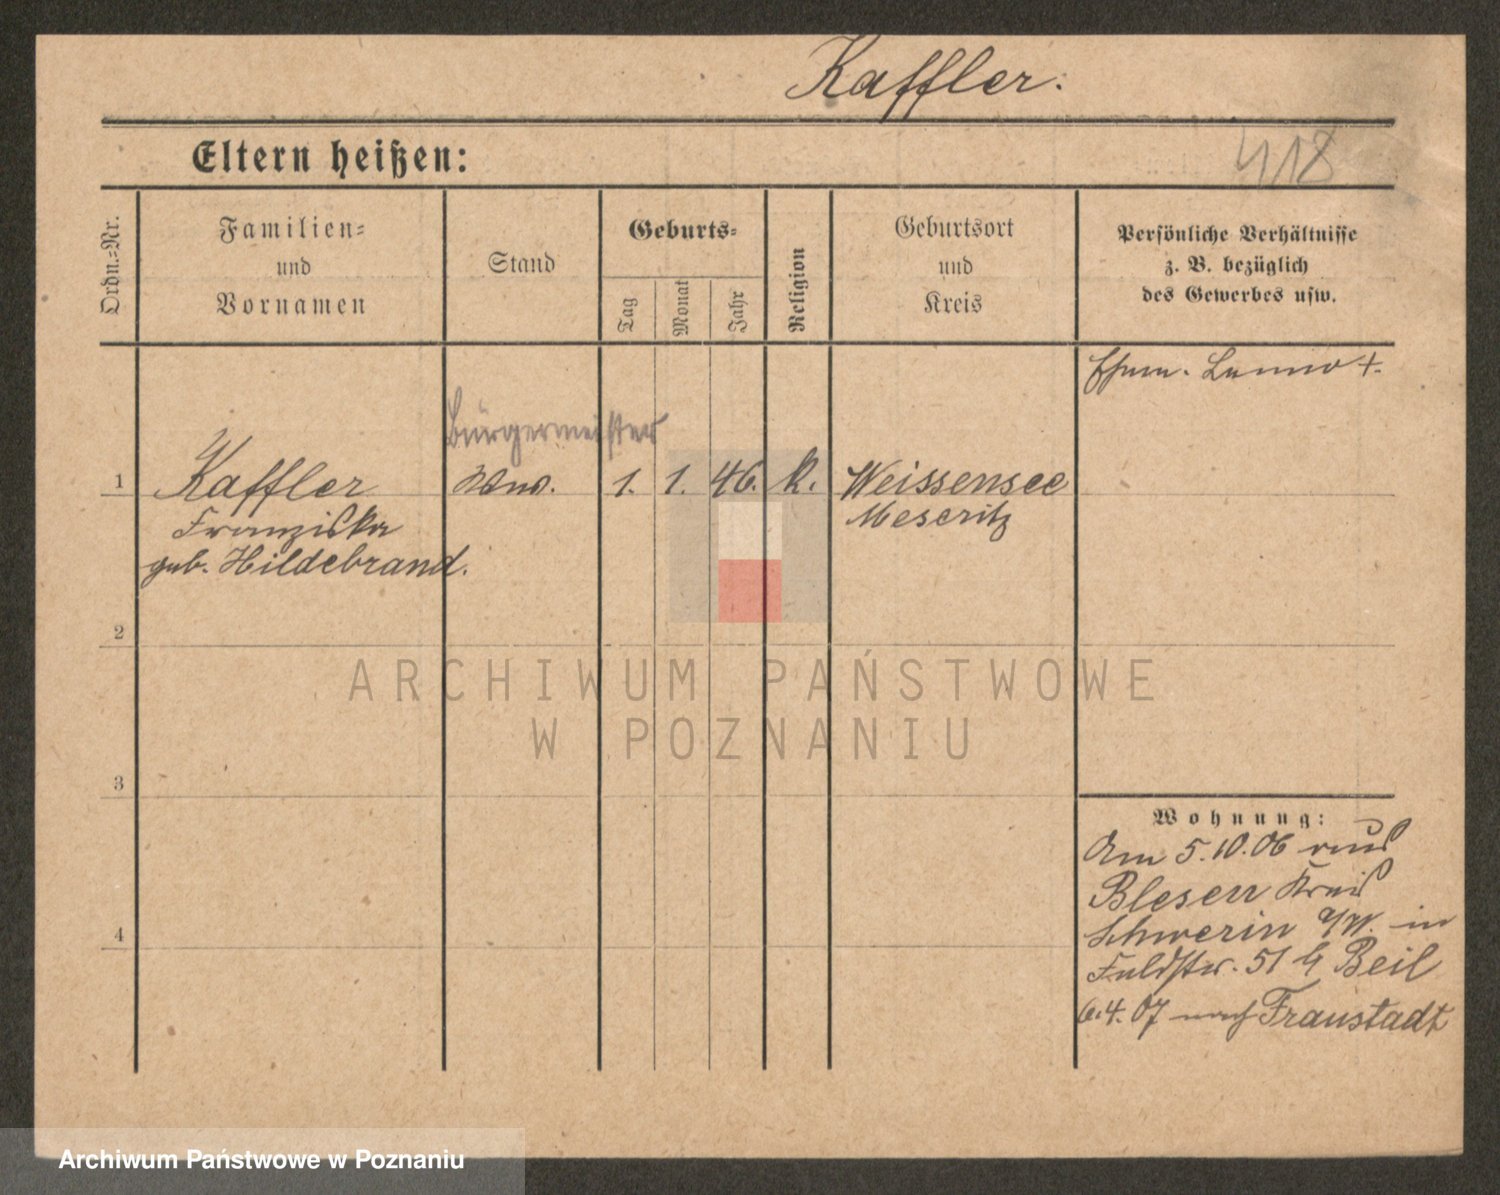 Kaffler.
418
Eltern heißen:
Ordn.-Nr.
Familien-
und
Vornamen
Stand
Geburts-
Tag
Monat
Jahr
Religion
Geburtsort
und
Kreis
Persönliche Verhältnisse
z. B. bezüglich
des Gewerbes usw.
Ehem. +.
Bürgermeister
1 Kaffler Wwe. 1. 1. 46. k. Weissensee
Franziska Meseritz
geb. Hildebrand.
2
3
4
Wohnung:
Am 5.10.06 aus
Blesen Kreis
Schwerin a/W. in
Feldstr. 51 b Beil
6.4.07 nach Fraustadt
ARCHIWUM PAŃSTWOWE
W POZNANIU
Archiwum Państwowe w Poznaniu